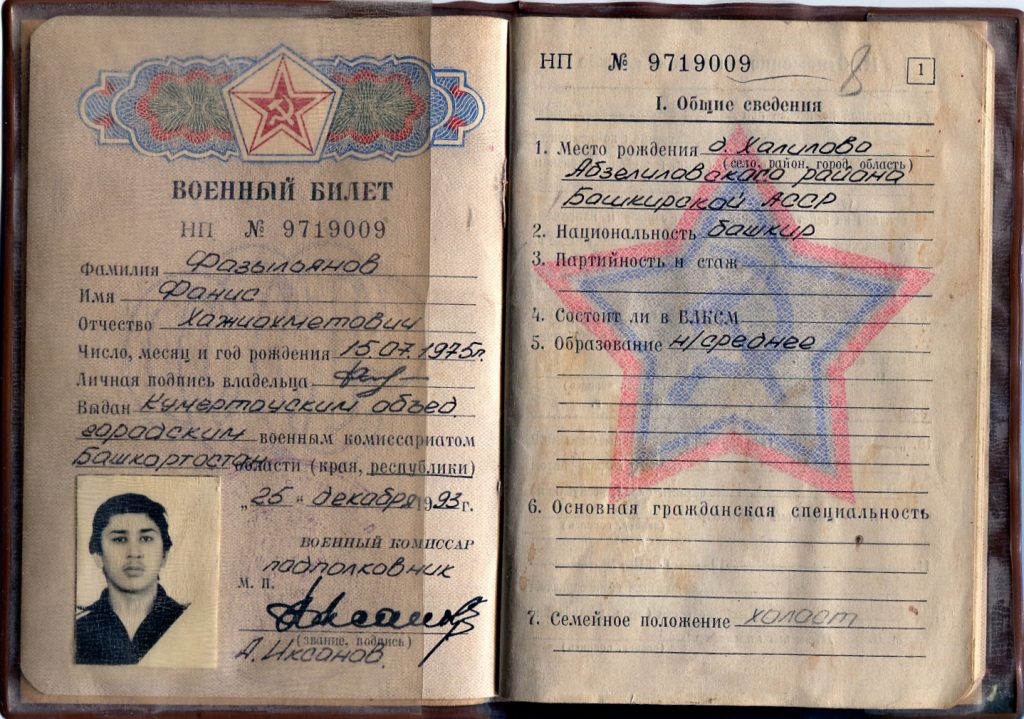 ВОЕННЫЙ БИЛЕТ
НП № 9719009
Фамилия Фазыльянов
Имя Фанис
Отчество Хажиахметович
Число, месяц и год рождения 15.07.1975г.
Личная подпись владельца
Выдан Кумертауским объед
гарадским военным комиссариатом
Башкортостан области (края, республики)
„25" декабря 1993г.
ВОЕННЫЙ КОМИССАР
подполковник
М. П.
(звание, подпись)
А. Иксанов.
НП № 9719009 8
1
I. Общие сведения
1. Место рождения д. Халилово
(село, район, город, область)
Абзелиловского района
Башкирской АССР
2. Национальность башкир
3. Партийность и стаж
4. Состоит ли в ВЛКСМ
5. Образование н/среднее
6. Основная гражданская специальность
7. Семейное положение холост